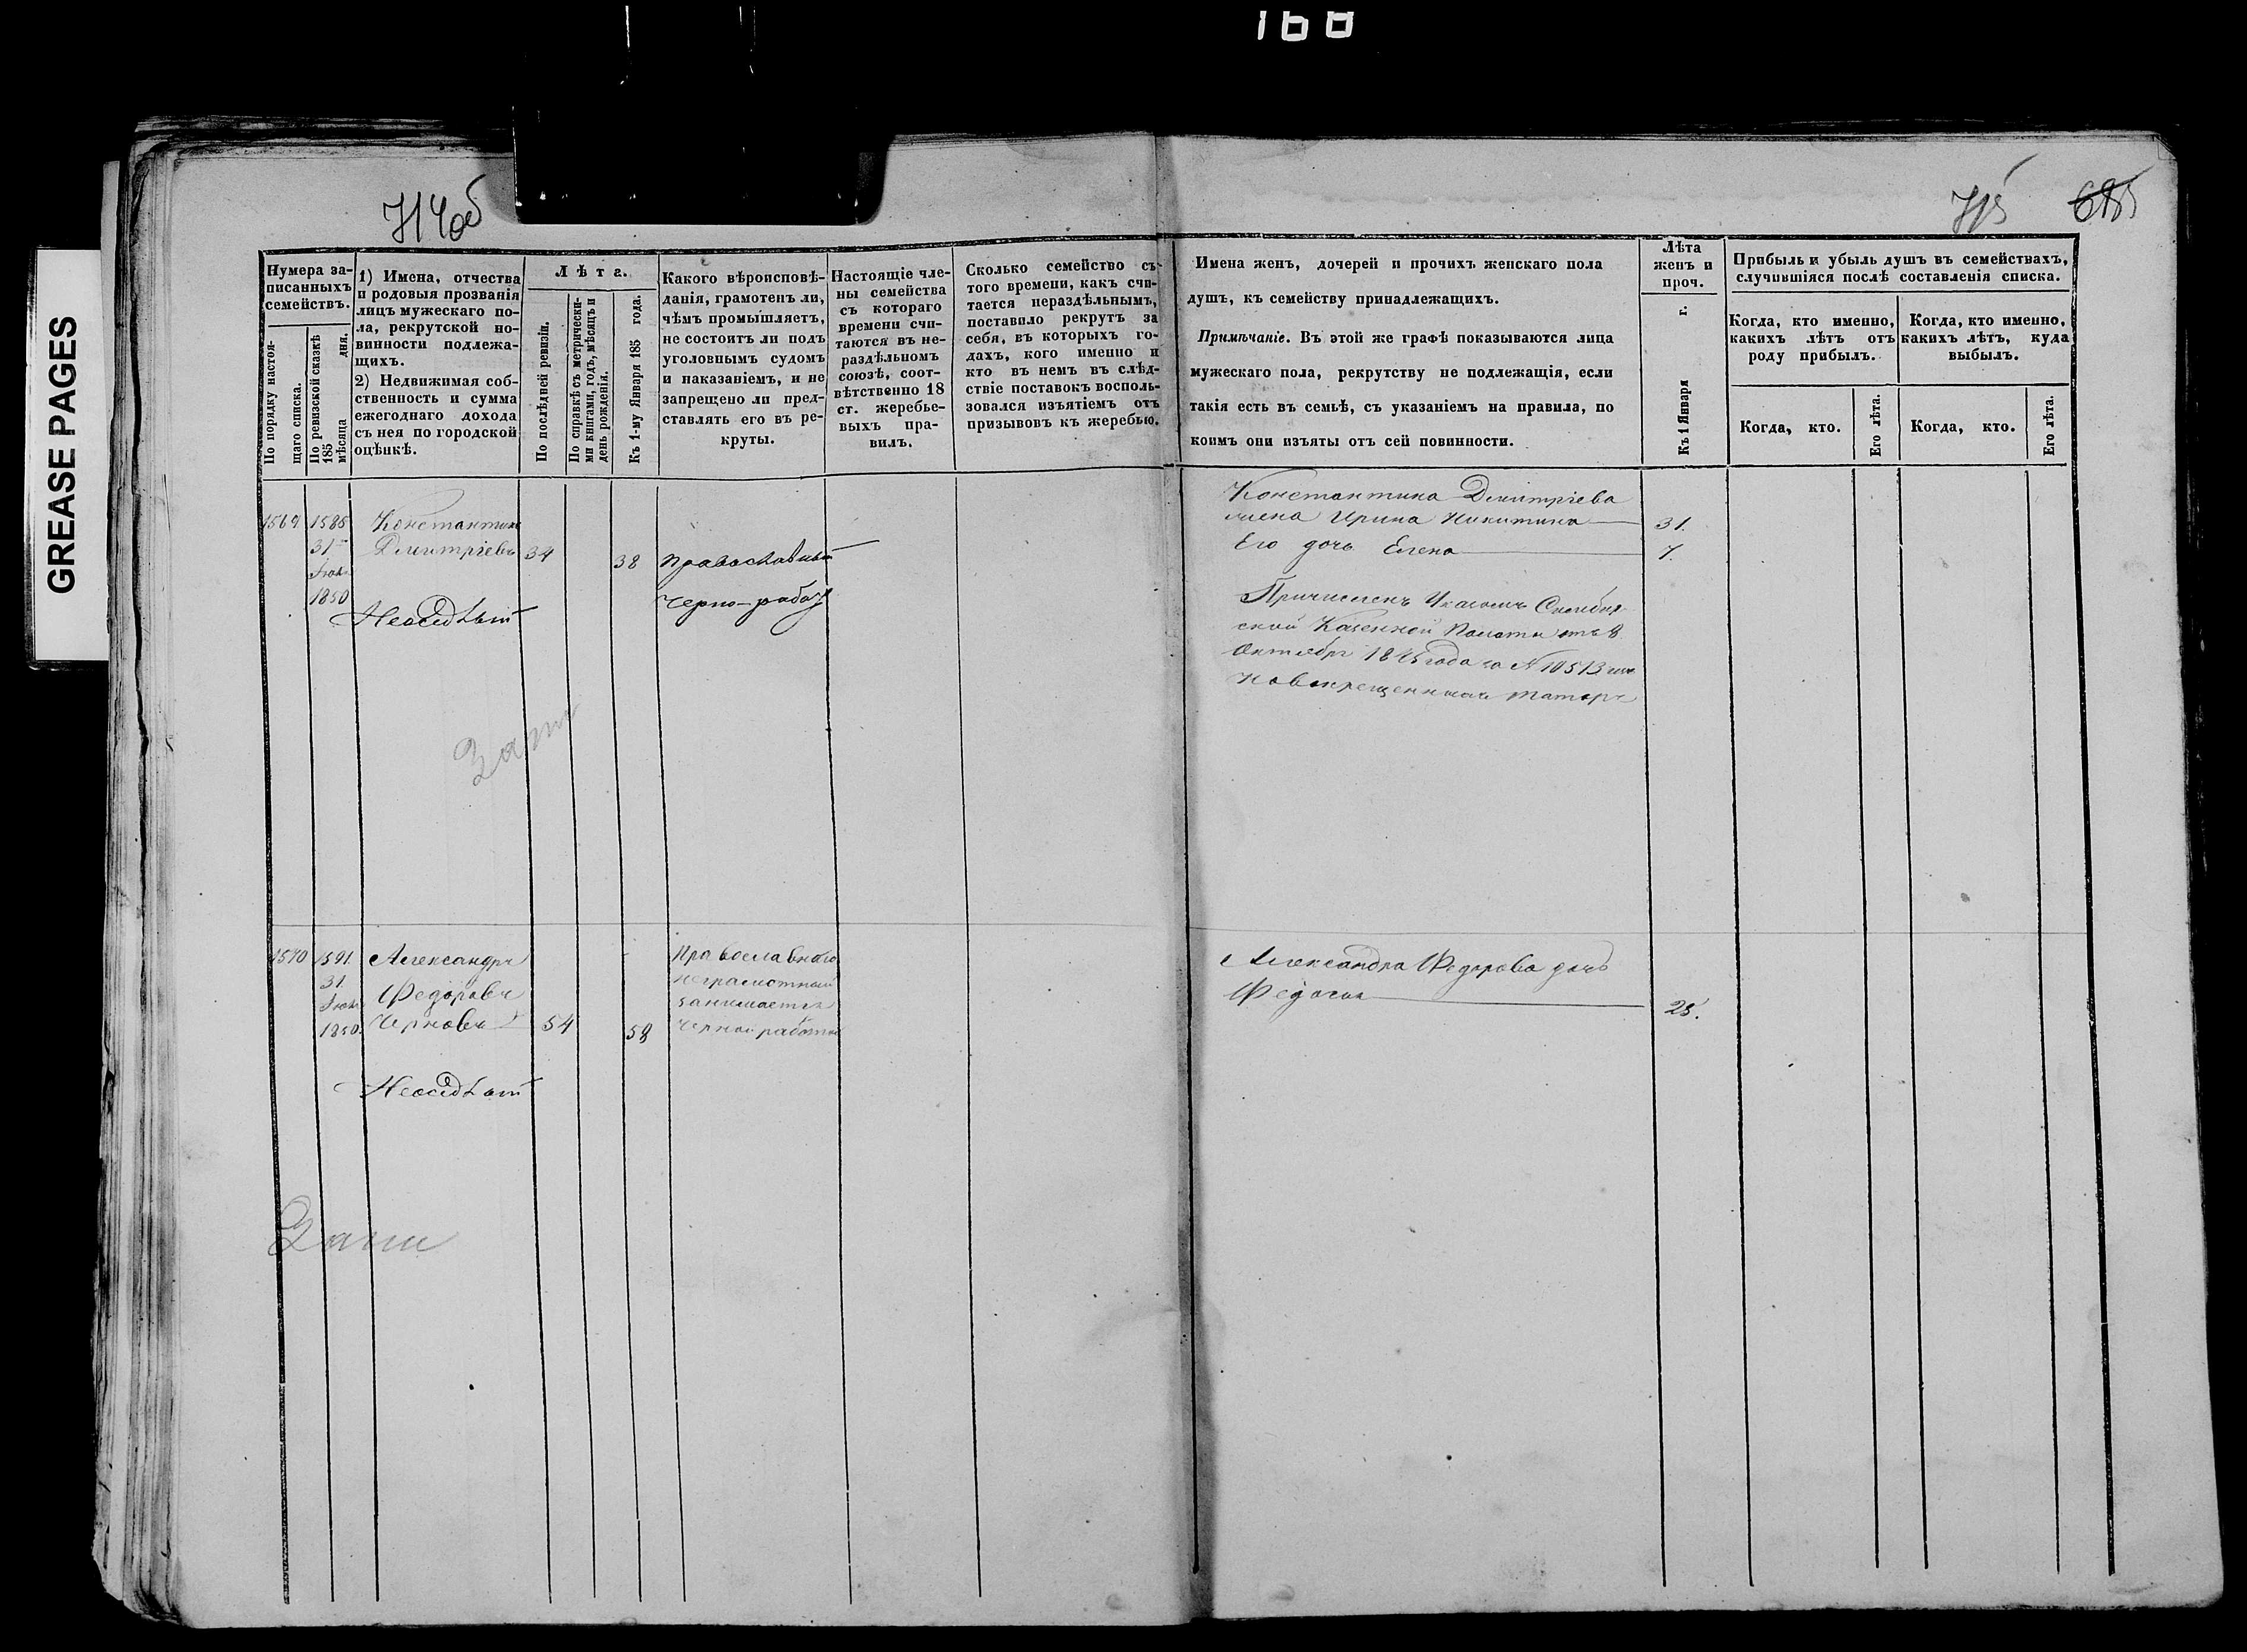 168
GREASE PAGES
714об
715
685
Нумера записанныхъ семействъ.
По порядку настоящаго списка.
По ревизской сказкѣ 185 мѣсяца дня.
1) Имена, отчества
и родовыя прозванія
лицъ мужескаго по-
ла, рекрутской по-
винности подлежа-
щихъ.
2) Недвижимая соб-
ственность и сумма
ежегоднаго дохода
съ нея по городской
оцѣнкѣ.
Лѣта.
По послѣдней ревизіи.
По справкѣ съ метрически-
ми книгами, годъ, мѣсяцъ и
день рожденія.
Къ 1-му Января 185 года.
Какого вѣроисповѣ-
данія, грамотенъ ли,
чѣмъ промышляетъ,
не состоитъ ли подъ
уголовнымъ судомъ
и наказаніемъ, и не
запрещено ли пред-
ставлять его въ ре-
круты.
Настоящіе чле-
ны семейства
съ котораго
времени счи-
таются въ не-
раздѣльномъ
союзѣ, соот-
вѣтственно 18
ст. жеребье-
выхъ пра-
вилъ.
Сколько семейство съ
того времени, какъ счи-
тается нераздѣльнымъ,
поставило рекрутъ за
себя, въ которыхъ го-
дахъ, кого именно и
кто въ немъ въ слѣд-
ствіе поставокъ восполь-
зовался изъятіемъ отъ
призывовъ къ жеребью.
Имена женъ, дочерей и прочихъ женскаго пола
душъ, къ семейству принадлежащихъ.
Примѣчаніе. Въ этой же графѣ показываются лица
мужескаго пола, рекрутству не подлежащія, если
такія есть въ семьѣ, съ указаніемъ на правила, по
коимъ они изъяты отъ сей повинности.
Лѣта
женъ и
проч.
Къ 1 Января г.
Прибыль и убыль душъ въ семействахъ,
случившіяся послѣ составленія списка.
Когда, кто именно,
какихъ лѣтъ отъ
роду прибылъ.
Когда, кто именно,
какихъ лѣтъ, куда
выбылъ.
Когда, кто.
Его лѣта.
Когда, кто.
Его лѣта.
1569 1588 Константинъ
31 Дмитріевъ 34 38 Православный
1850
Неосѣдлый Черно-рабоч
Константина Дмитріева
жена Ирина Никитина 31.
Его дочь Елена 7.
Причисленъ Указомъ Симбир
ской Казенной Палаты отъ 8
Октября 1845 года за № 10513 изъ
Новокрещенныхъ татаръ
1570 1591. Александръ Православного
31 Федоровъ неграмотный
занимается
1850. Черновъ 54 58 черной работой
Неосѣдлый
Александра Федорова дочь
Федосья 25.